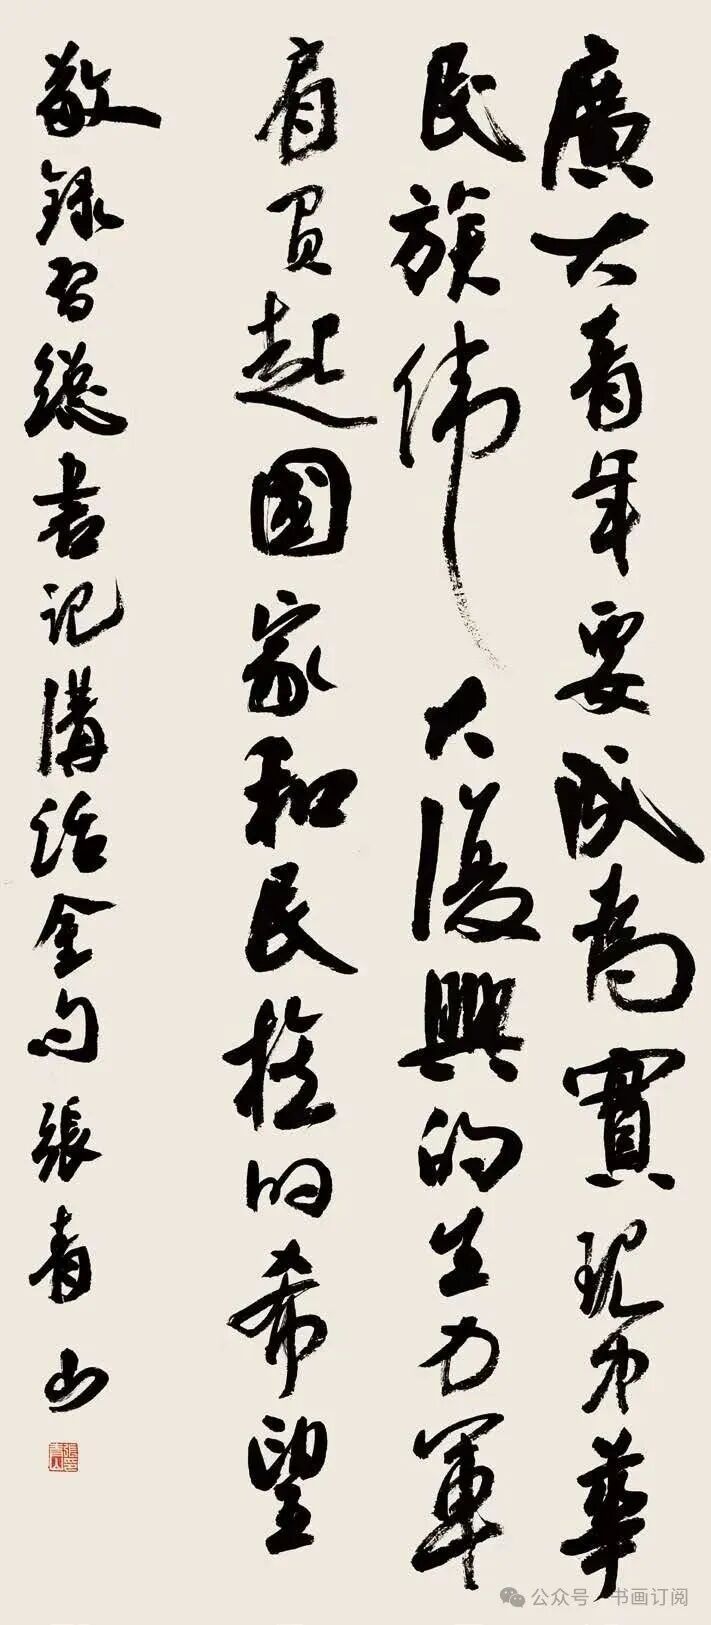 廣大青年要成為實現中華
民族伟大復興的生力軍
肩負起國家和民族的希望
敬録習總書記講話金句 張青山
公众号·书画订阅